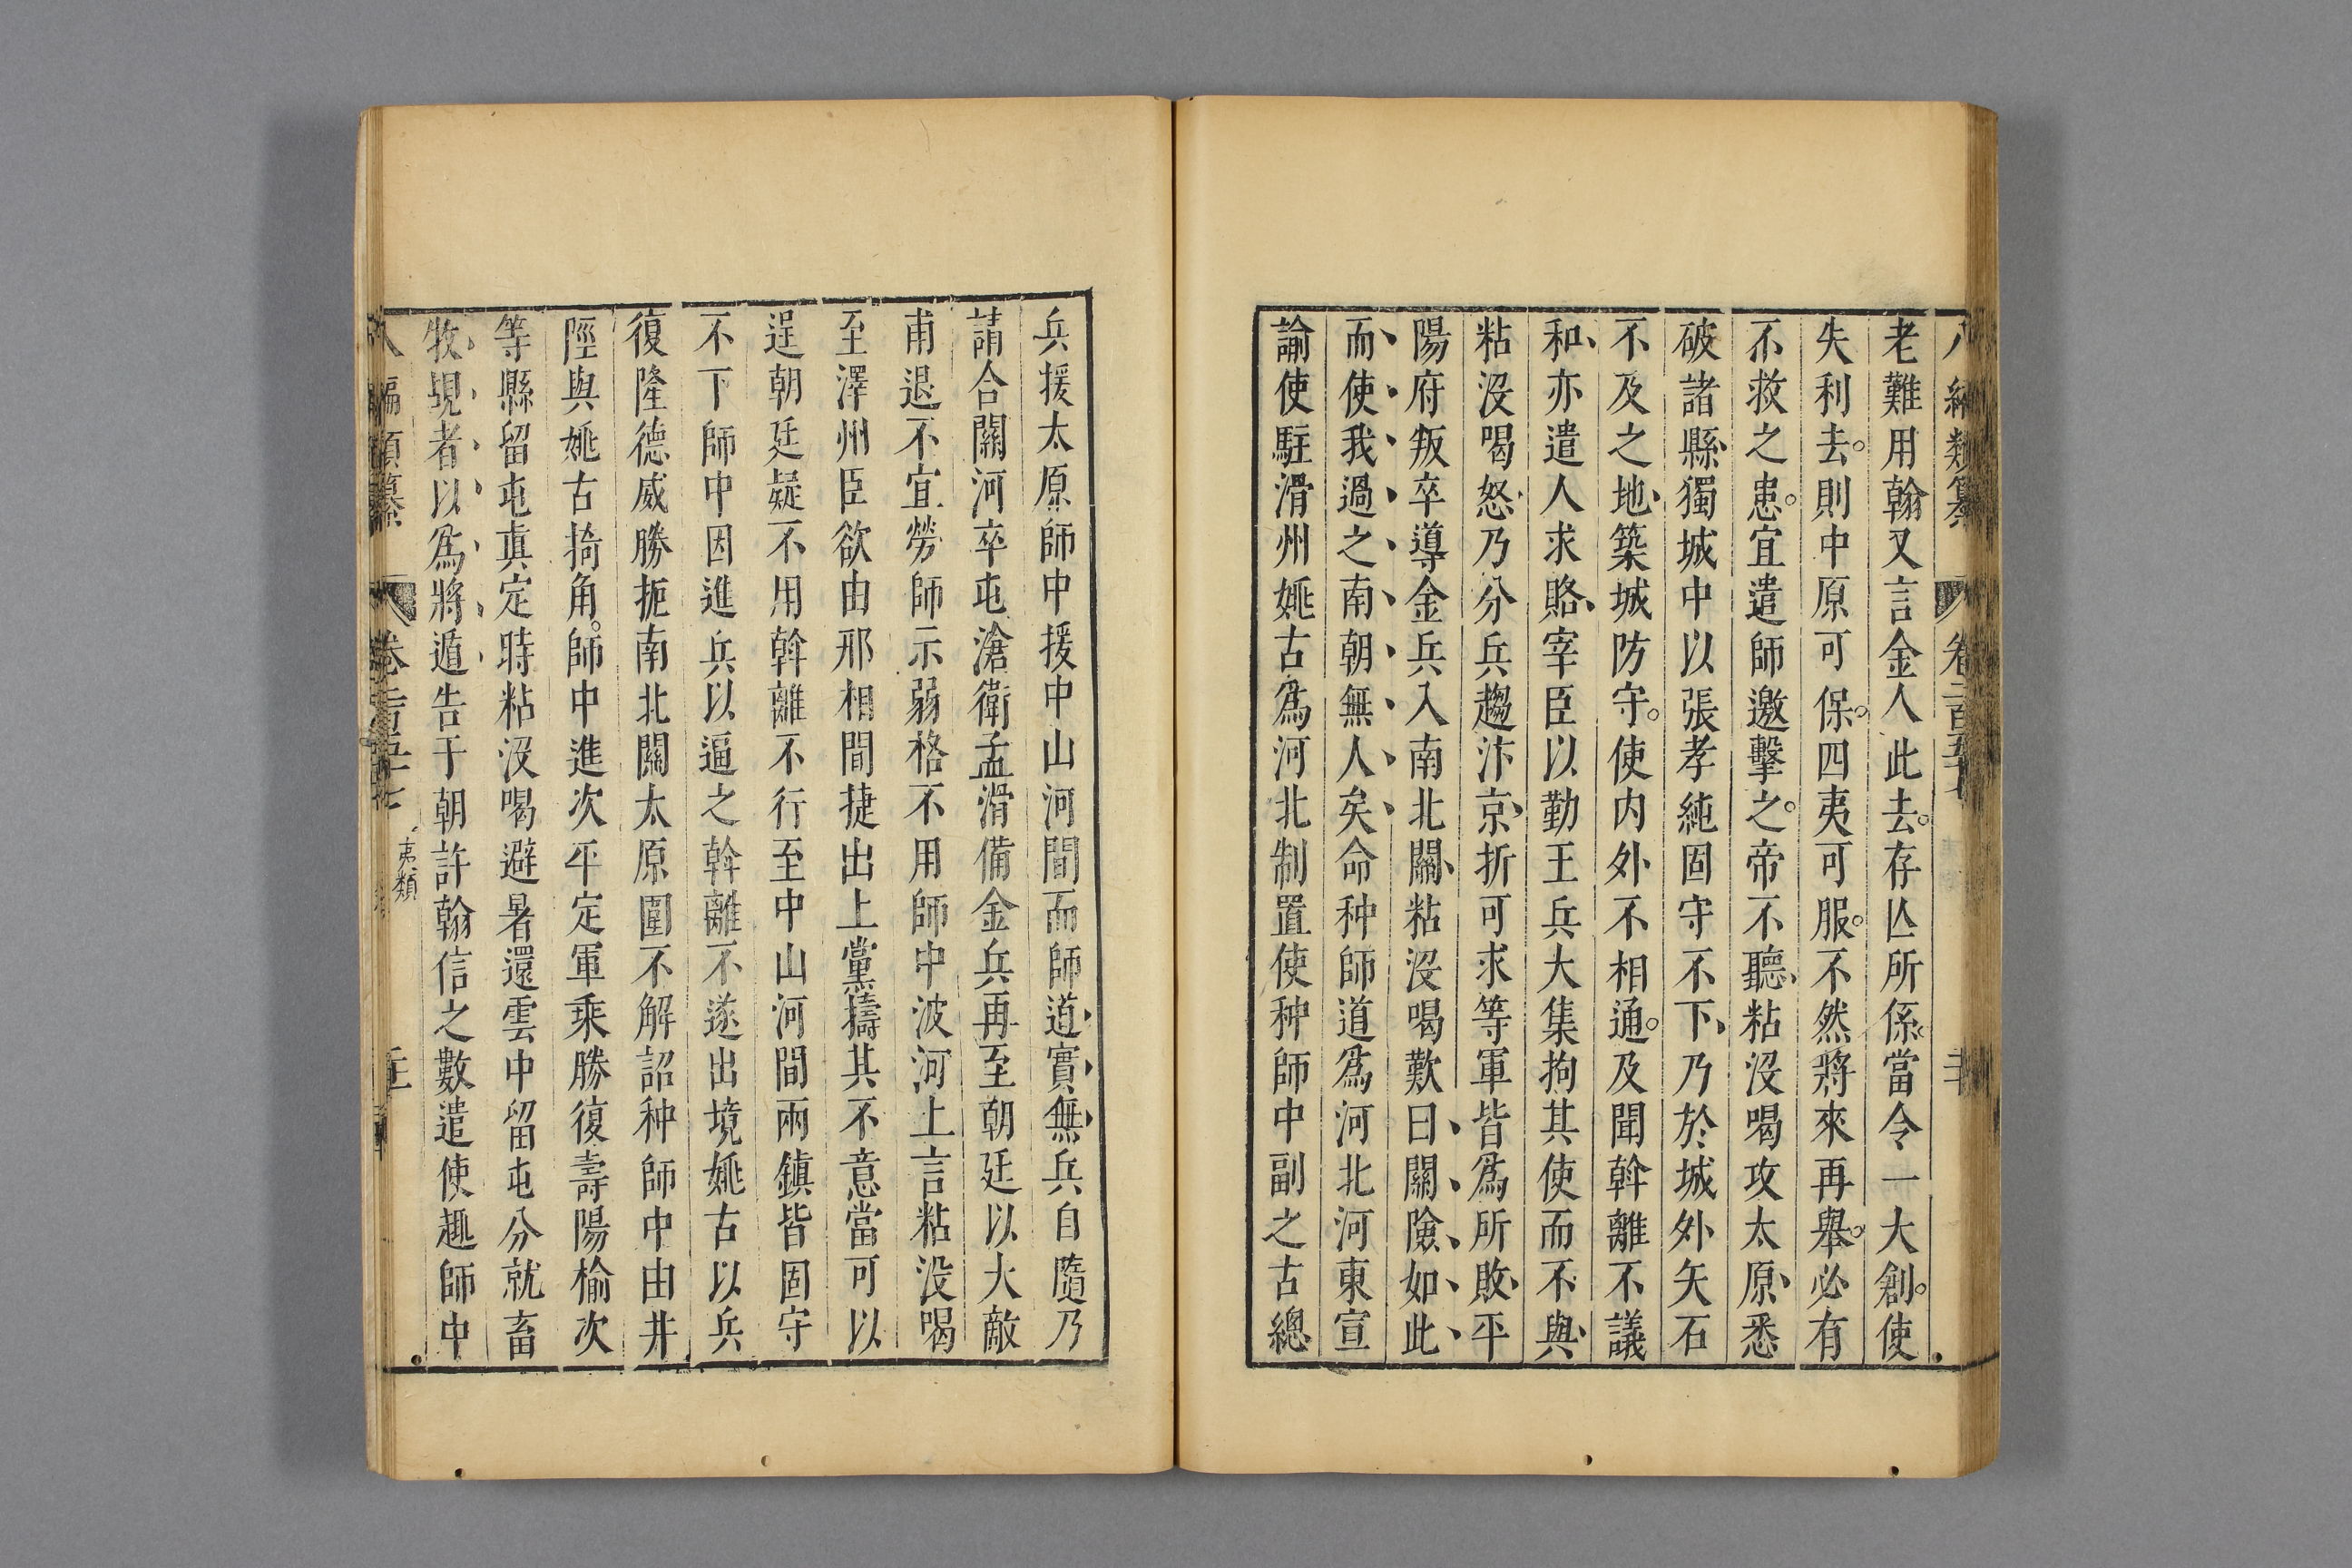 八編類纂 卷二百五十七 二十
老難用翰又言金人此去。存亾所係、當令一大創。使
失利去。則中原可保。四夷可服。不然將來再舉。必有
不救之患。宜遣師邀擊之。帝不聽、粘沒喝攻太原、悉
破諸縣、獨城中以張孝純固守不下、乃於城外矢石
不及之地、築城防守。使内外不相通。及聞斡離不議
和、亦遣人求賂、宰臣以勤王兵大集拘其使而不與、
粘沒喝怒、乃分兵趨汴京、折可求等軍皆爲所敗、平
陽府叛卒導金兵入南北關、粘沒喝歎曰、關險如此、
而使我過之南朝無人矣命种師道爲河北河東宣
諭使駐滑州姚古爲河北制置使种師中副之古總
兵援太原師中援中山河間而師道實無兵自隨乃
請合關河卒屯滄衛孟滑備金兵再至朝廷以大敵
甫退不宜勞師示弱格不用師中渡河上言粘沒喝
至澤州臣欲由邢相間捷出上黨擣其不意當可以
逞朝廷疑不用斡離不行至中山河間兩鎮皆固守
不下師中因進兵以逼之斡離不遂出境姚古以兵
復隆德威勝扼南北關太原圍不解詔种師中由井
陘與姚古掎角。師中進次平定軍乘勝復壽陽榆次
等縣留屯真定時粘沒喝避暑還雲中留屯分就畜
牧覘者以爲將遁告于朝許翰信之數遣使趣師中
八編類纂 卷二百五十七 夷類